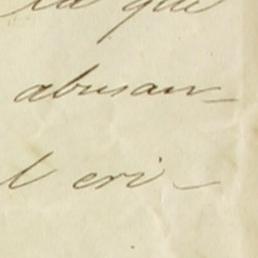 la que
abusan-
l cri-